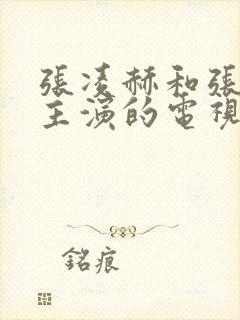 張凌赫和張
主演的電視
銘痕